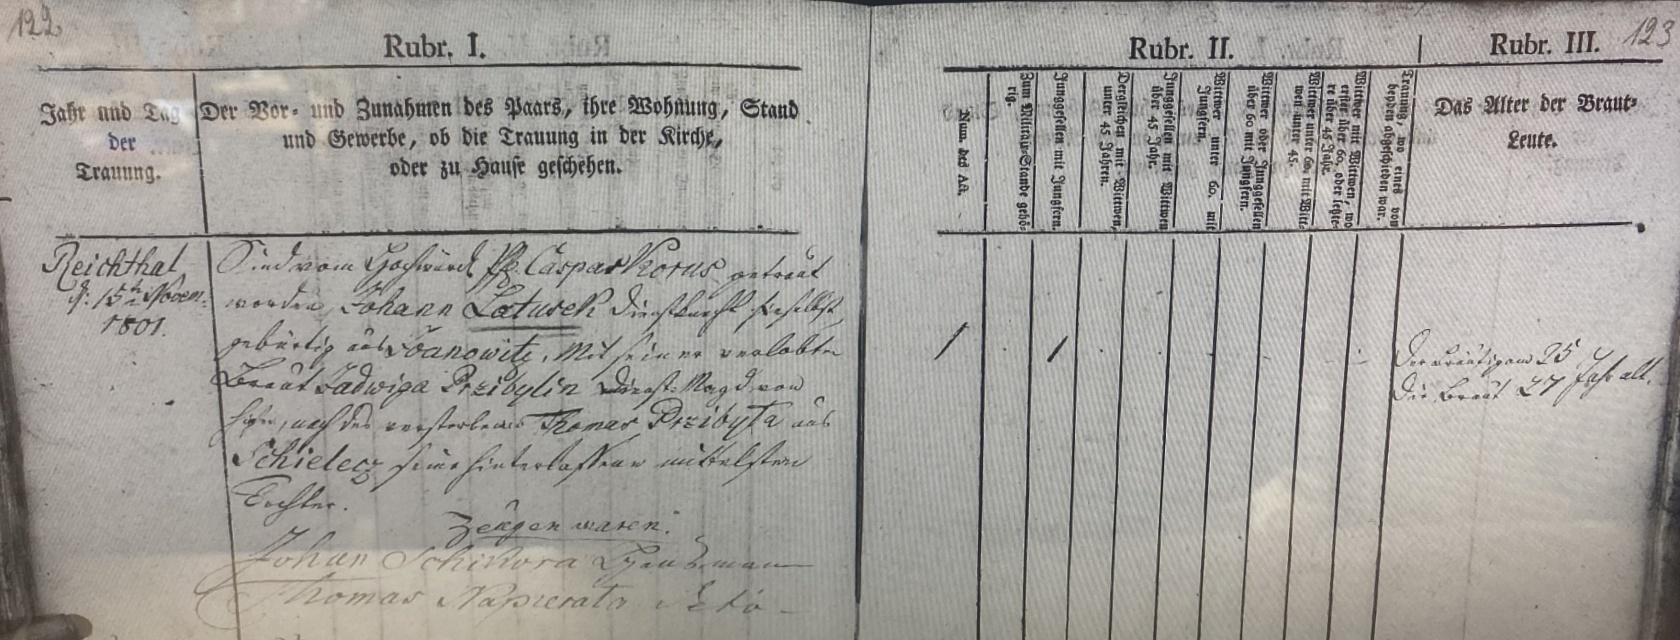 122
Rubr. I.
Jahr und Tag
der
Trauung.
Der Vor- und Zunahmen des Paars, ihre Wohnung, Stand
und Gewerbe, ob die Trauung in der Kirche,
oder zu Hause geschehen.
Rubr. II.
Num. des Act.
Zum Militair-Stande gehö-
rig.
Junggesellen mit Jungfern.
Dergleichen mit Wittwen,
unter 45 Jahren.
Junggesellen mit Wittwen
über 45 Jahr.
Wittwer unter 60, mit
Jungfern.
Wittwer oder Junggesellen
über 60 mit Jungfern.
Wittwer unter 60 mit Witt-
wen unter 45.
Wittwer mit Wittwen, wo
erster über 60, oder letzte-
re über 45 Jahr.
Trauung, wo eines von
beyden abgeschieden war.
Rubr. III.
123
Das Alter der Braut-
Leute.
Reichthal
d: 15t Novem:
1801.
Sind vom Hochwürd Pfr. Caspar Korus getraut
worden Johann Latusek Dienstknecht hieselbst,
gebürtig aus Joanowitz, Mit seiner verlobten
Braut Jadwiga Przibylin Dienst-Magd von
hier, nach des verstorbenen Thomas Przibyla aus
Schielecz seine hinterlassene mittelsten
Tochter.
Zeügen waren:
Johan Schikora
Thomas Napierata
1
1
Der Bräutigam 25
Die Braut 27 Jahr alt.